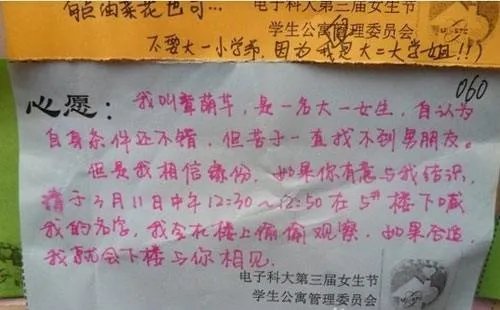 油菜花也可…
电子科大第三届女生节
学生公寓管理委员会
不要大一小学弟,因为我是大二大学姐!!)
060
心愿:我叫萌草,是一名大一女生,自认为
自身条件还不错,但苦于一直找不到男朋友。
但是我相信缘份,如果你有意与我结识,
请于3月11日中午12:30~12:50在5#楼下喊
我的名字,我会在楼上偷偷观察,如果合适,
我就会下楼与你相见。
电子科大第三届女生节
学生公寓管理委员会